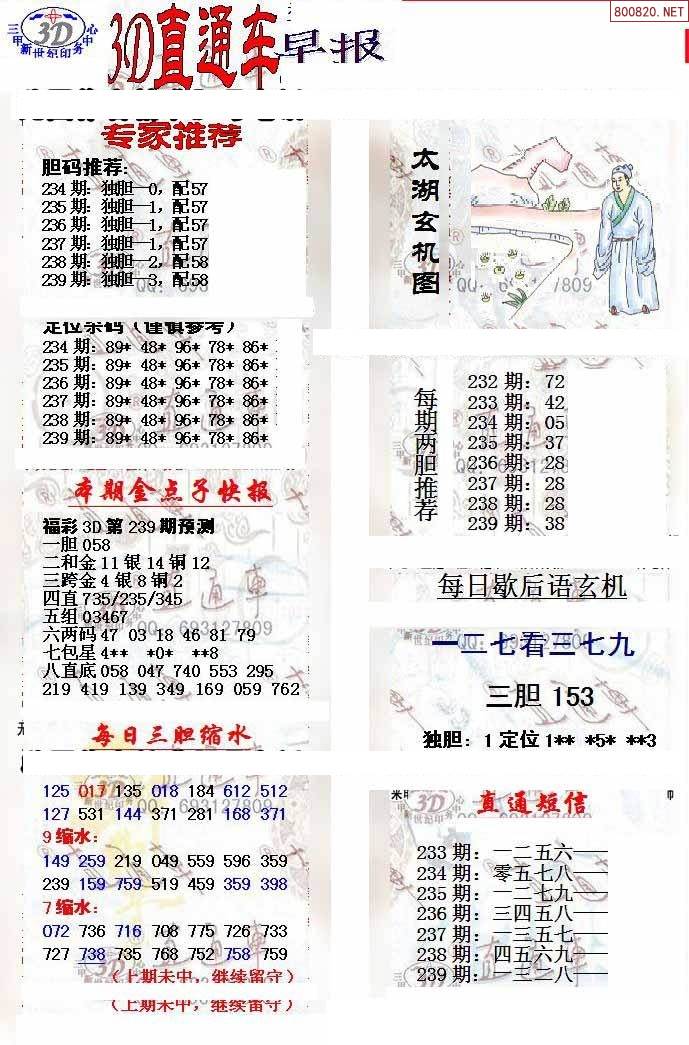 800820.NET
三甲 3D 中心
新世纪印务
3D直通车早报
专家推荐
胆码推荐：
234期：独胆—0，配57
235期：独胆—1，配57
236期：独胆—1，配57
237期：独胆—1，配57
238期：独胆—2，配58
239期：独胆—3，配58
定位杀码（谨慎参考）
234期：89* 48* 96* 78* 86*
235期：89* 48* 96* 78* 86*
236期：89* 48* 96* 78* 86*
237期：89* 48* 96* 78* 86*
238期：89* 48* 96* 78* 86*
239期：89* 48* 96* 78* 86*
本期金点子快报
福彩3D第239期预测
一胆058
二和金11银14铜12
三跨金4银8铜2
四直735/235/345
五组03467
六两码47 03 18 46 81 79
七包星4** *0* **8
八直底058 047 740 553 295
219 419 139 349 169 059 762
每日三胆缩水
125 017 135 018 184 612 512
127 531 144 371 281 168 371
9缩水：
149 259 219 049 559 596 359
239 159 759 519 459 359 398
7缩水：
072 736 716 708 775 726 733
727 738 735 768 752 758 759
（上期未中，继续留守）
（上期未中，继续留守）
太湖玄机图
每期两胆推荐
232期：72
233期：42
234期：05
235期：37
236期：28
237期：28
238期：28
239期：38
每日歇后语玄机
一二七看三七九
三胆153
独胆：1定位1** *5* **3
直通短信
233期：一二五六——
234期：零五七八——
235期：一二七九——
236期：三四五八——
237期：一三五七——
238期：四五六九——
239期：一三二八——
QQ：693127809